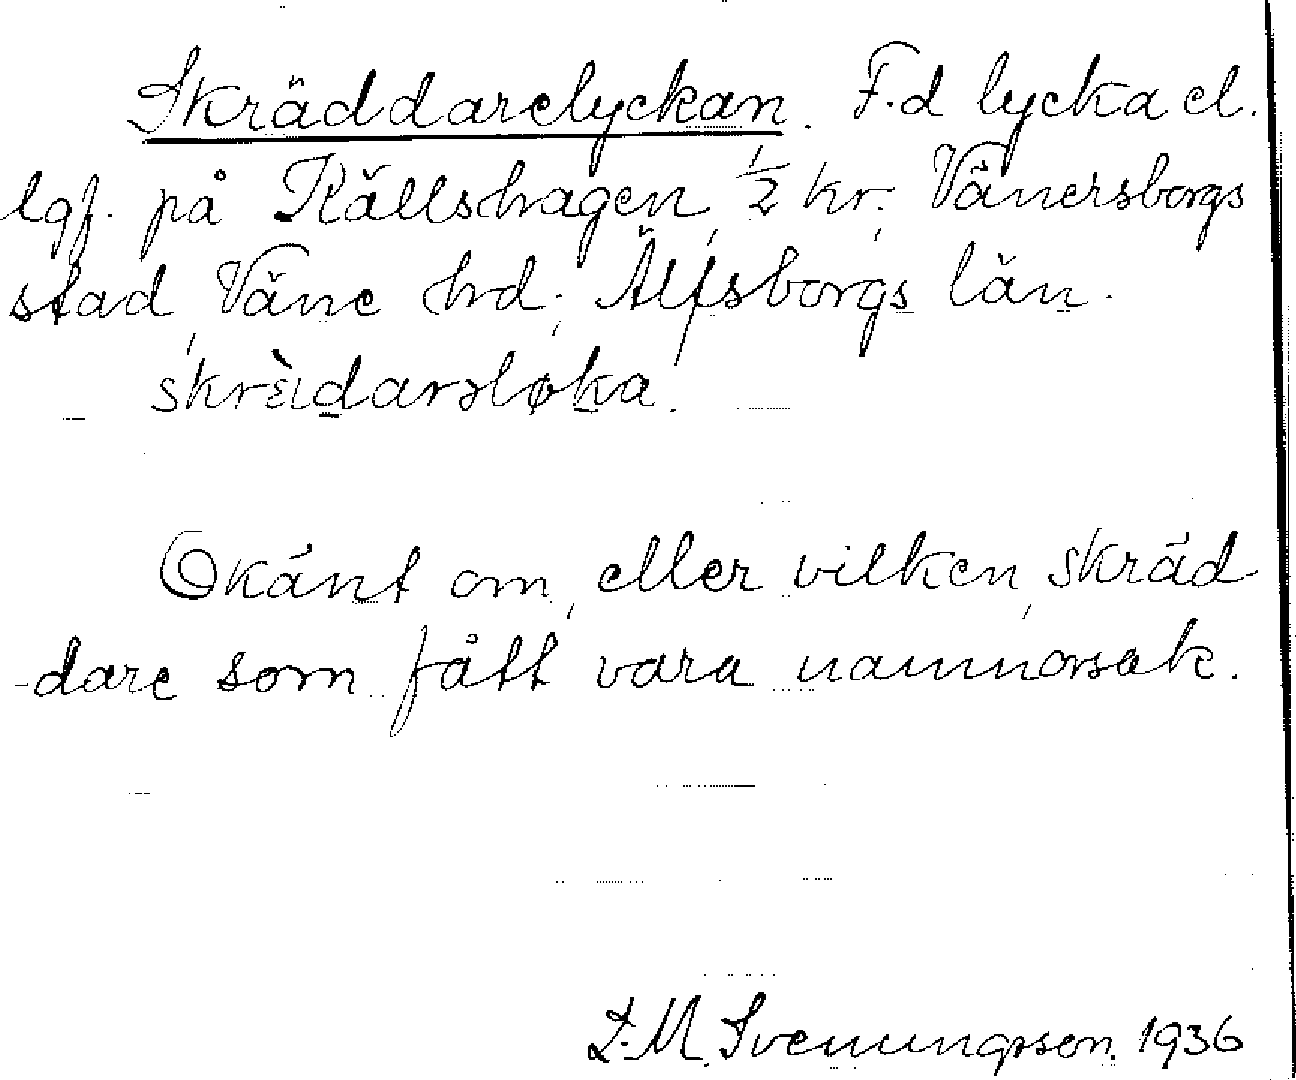 Skräddarelyckan. F.d lycka el.
lgf. på Källshagen, 1/2 kr., Vänersborgs
stad, Väne hd., Älfsborgs län.
skrɛ̀ıdarəløka.
Okänt om, eller vilken, skräd-
-dare som fått vara namnorsak.
L.M. Svenungsson. 1936